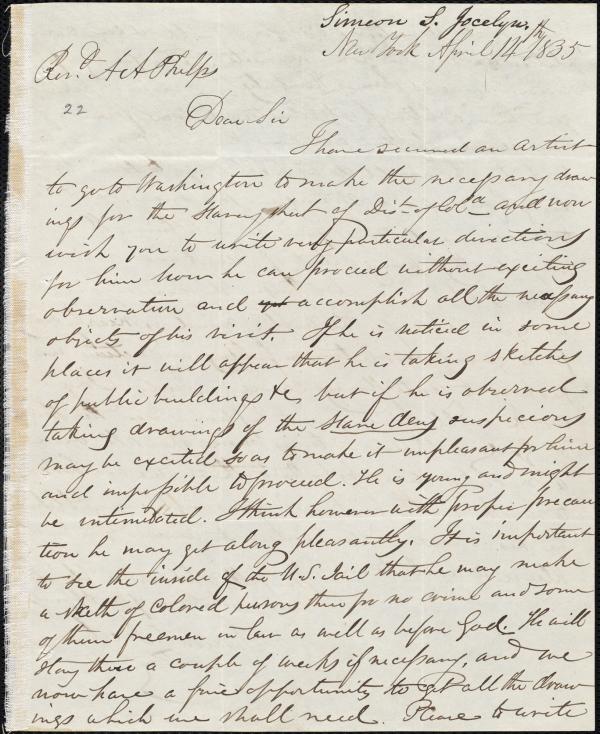 Simeon S. Jocelyn.
New York April 14th 1835
Rev.d A A Phelps
22
Dear Sir
I have secured an artist
to go to Washington to make the necessary draw
ings for the Slavery sheet of Dist. of Cola and now
wish you to write very particular directions
for him how he can proceed without exciting
observation and accomplish all the necessary
objects of his visit. If he is noticed in some
places it will appear that he is taking sketches
of public buildings &c but if he is observed
taking drawings of the Slave dens suspicions
may be excited so as to make it unpleasant for him
and impossible to proceed. He is young and might
be intimidated. I think however with proper precau
tion he may get along pleasantly. It is important
to see the inside of the U.S. Jail that he may make
a sketh of colored persons there for no crime and some
of them freemen in law as well as before God. He will
stay there a couple of weeks if necessary, and we
now have a fine opportunity to get all the draw
ings which we shall need. Please to write